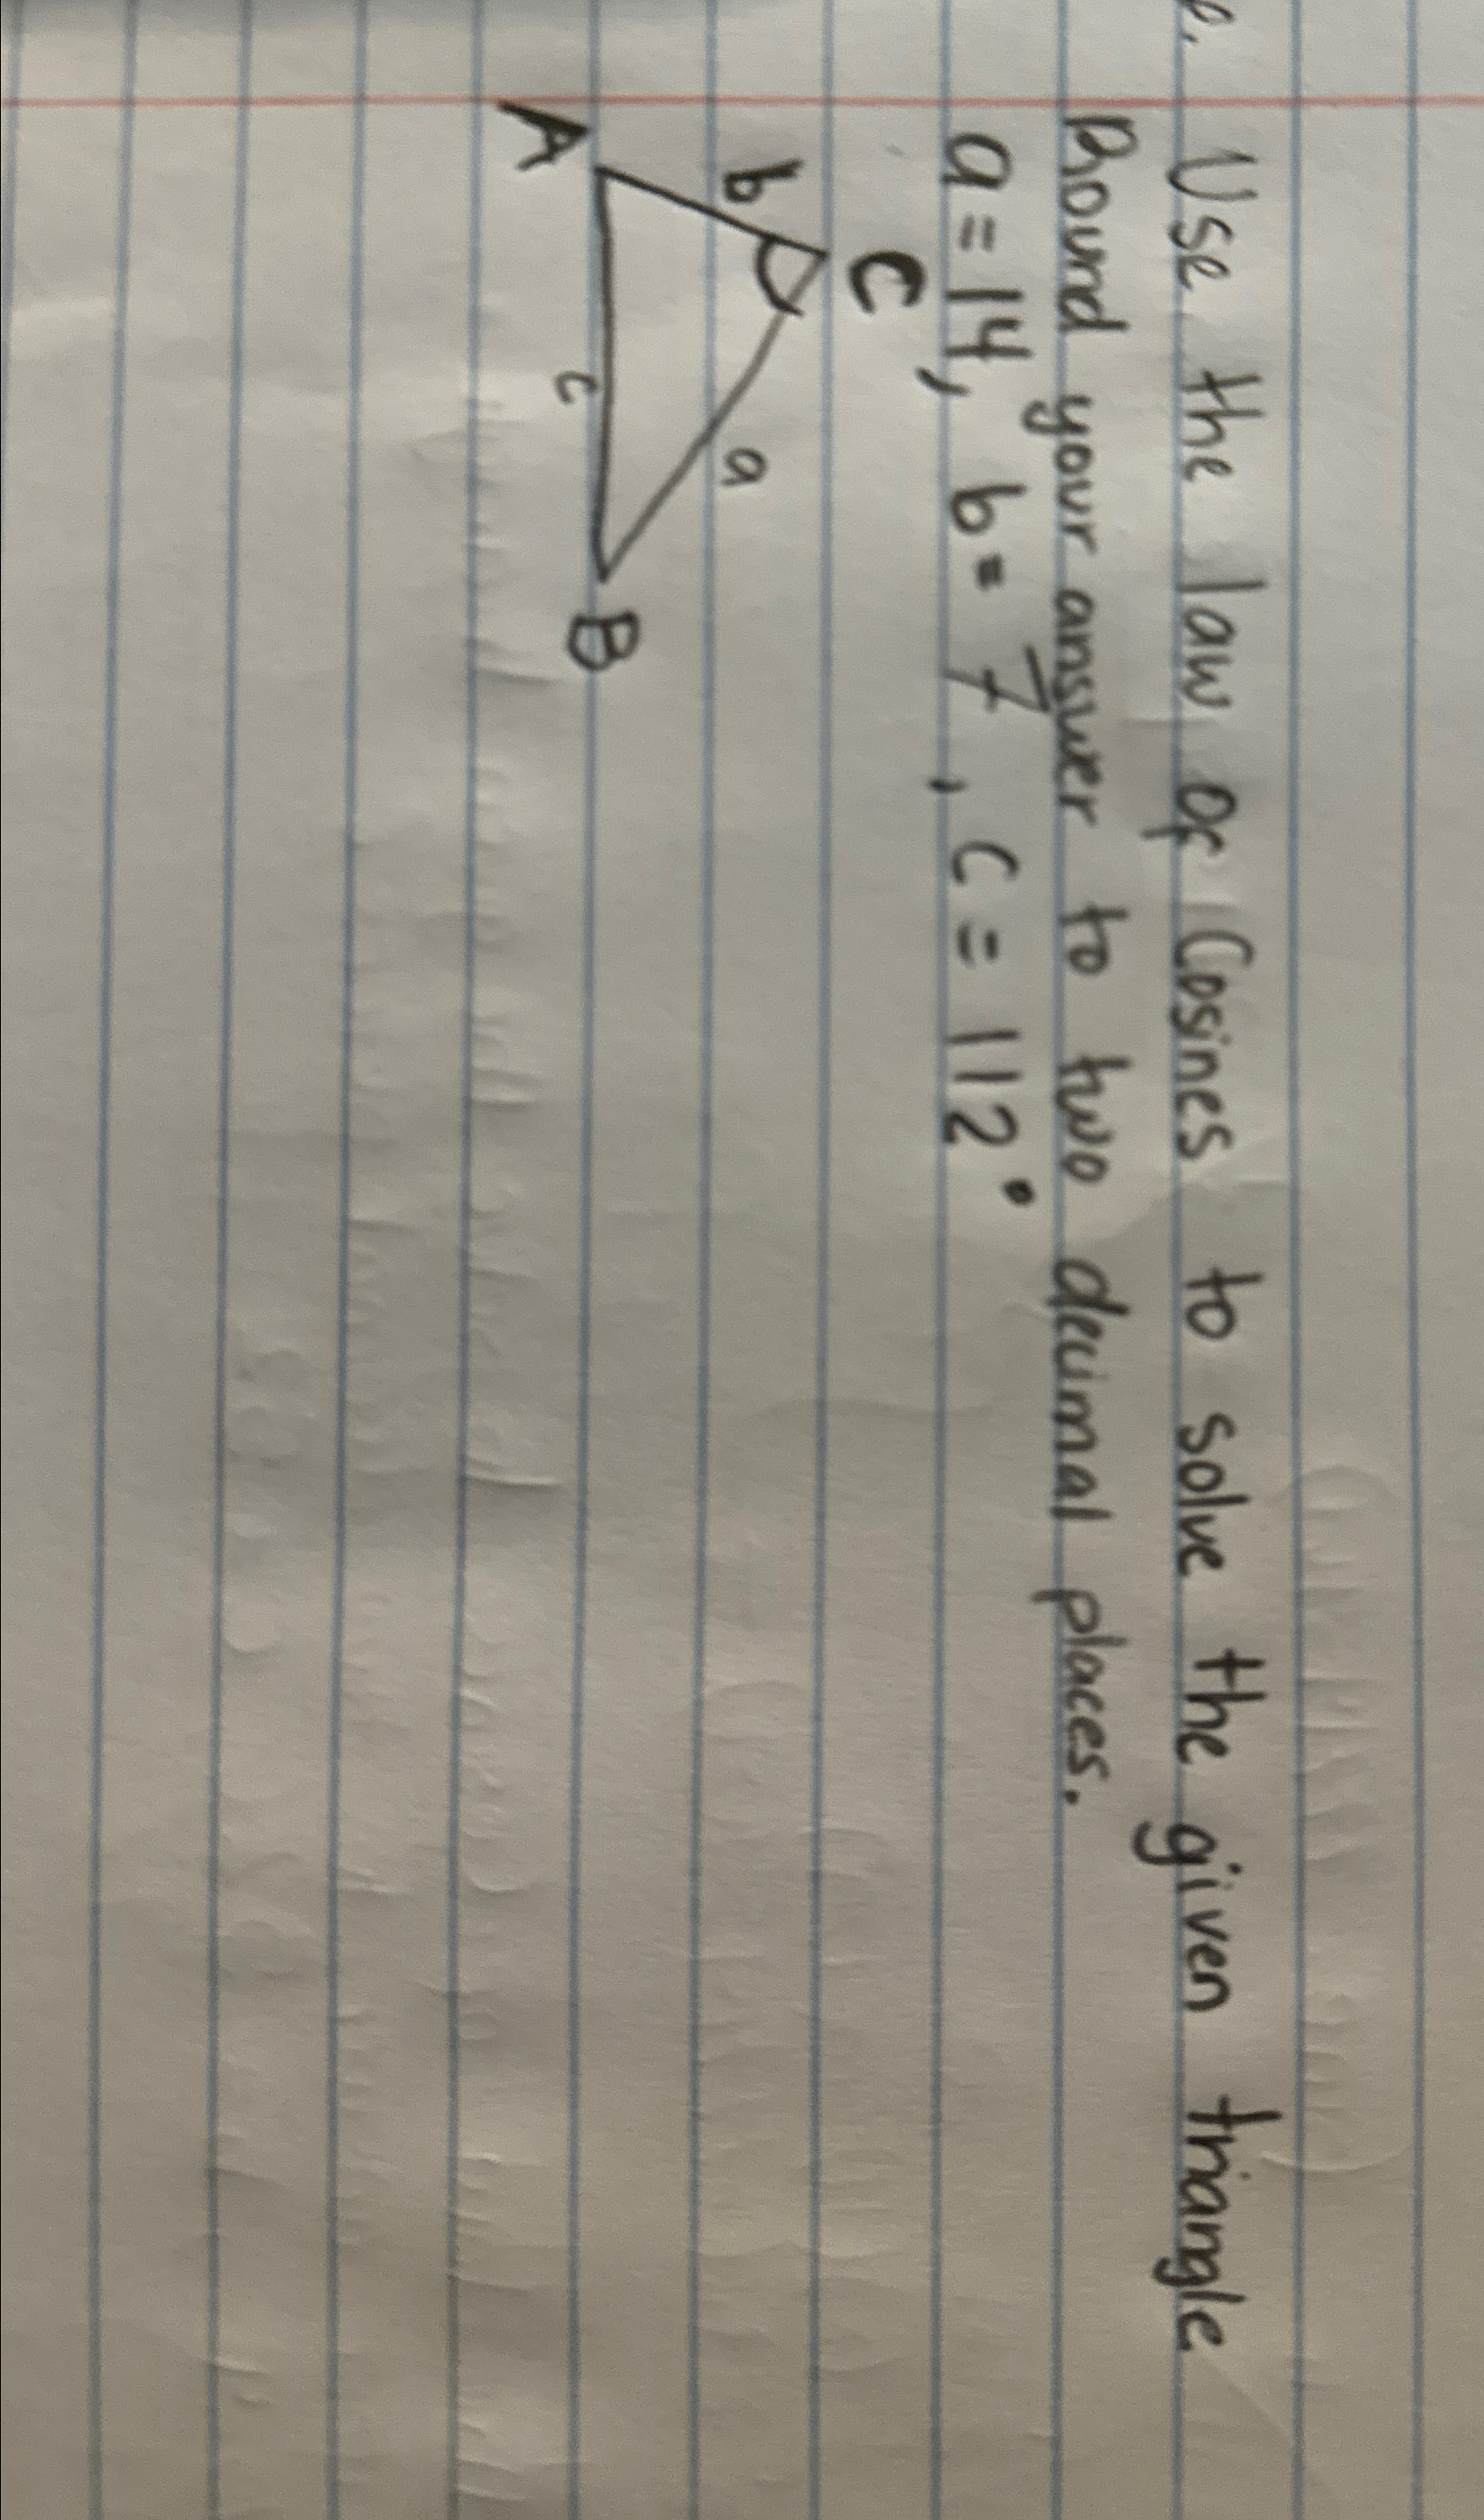 Use the law of Cosines to solve the given triangle
Round your answer to two decimal places.
a = 14, b = 7, C = 112°
C
b
a
A
c
B